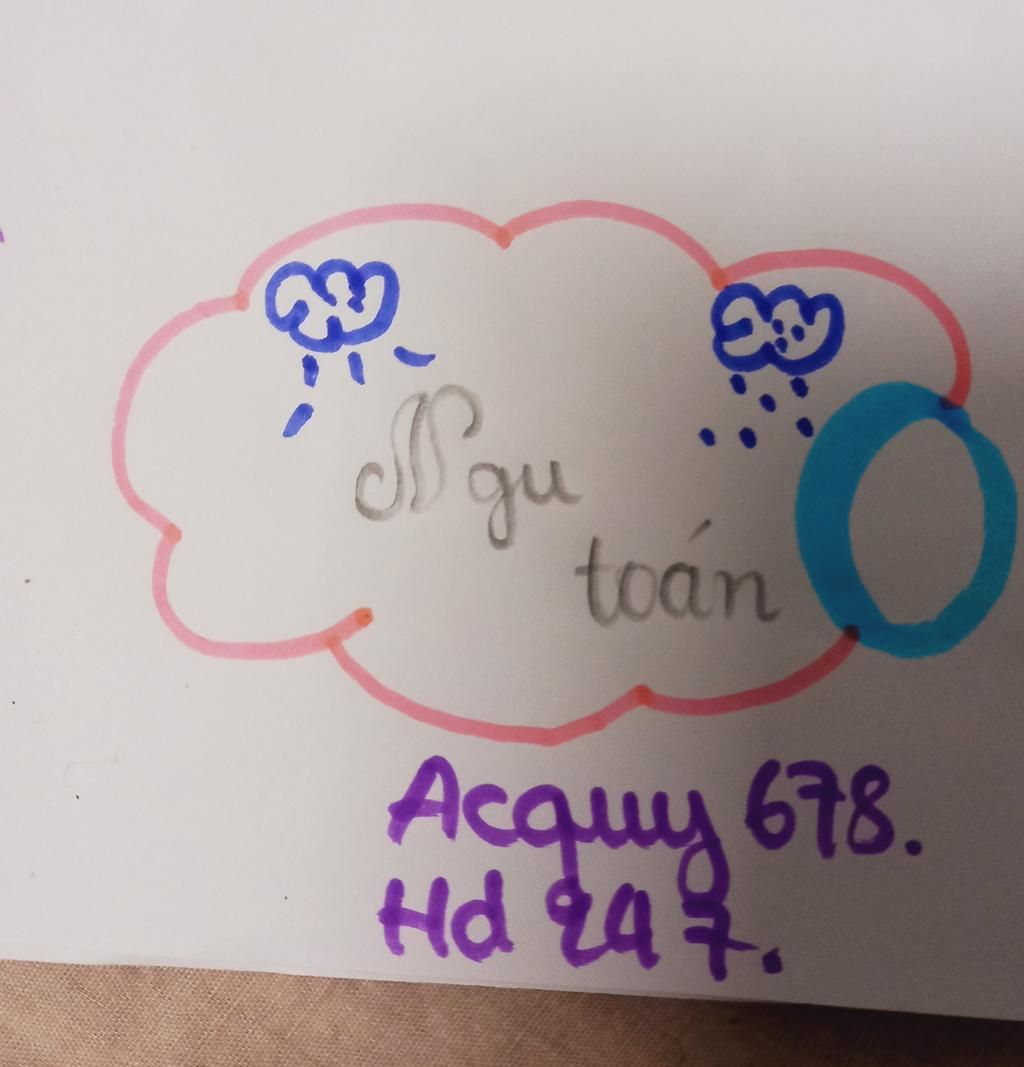 Ngu
toán
Acquy 678.
Hd 247.